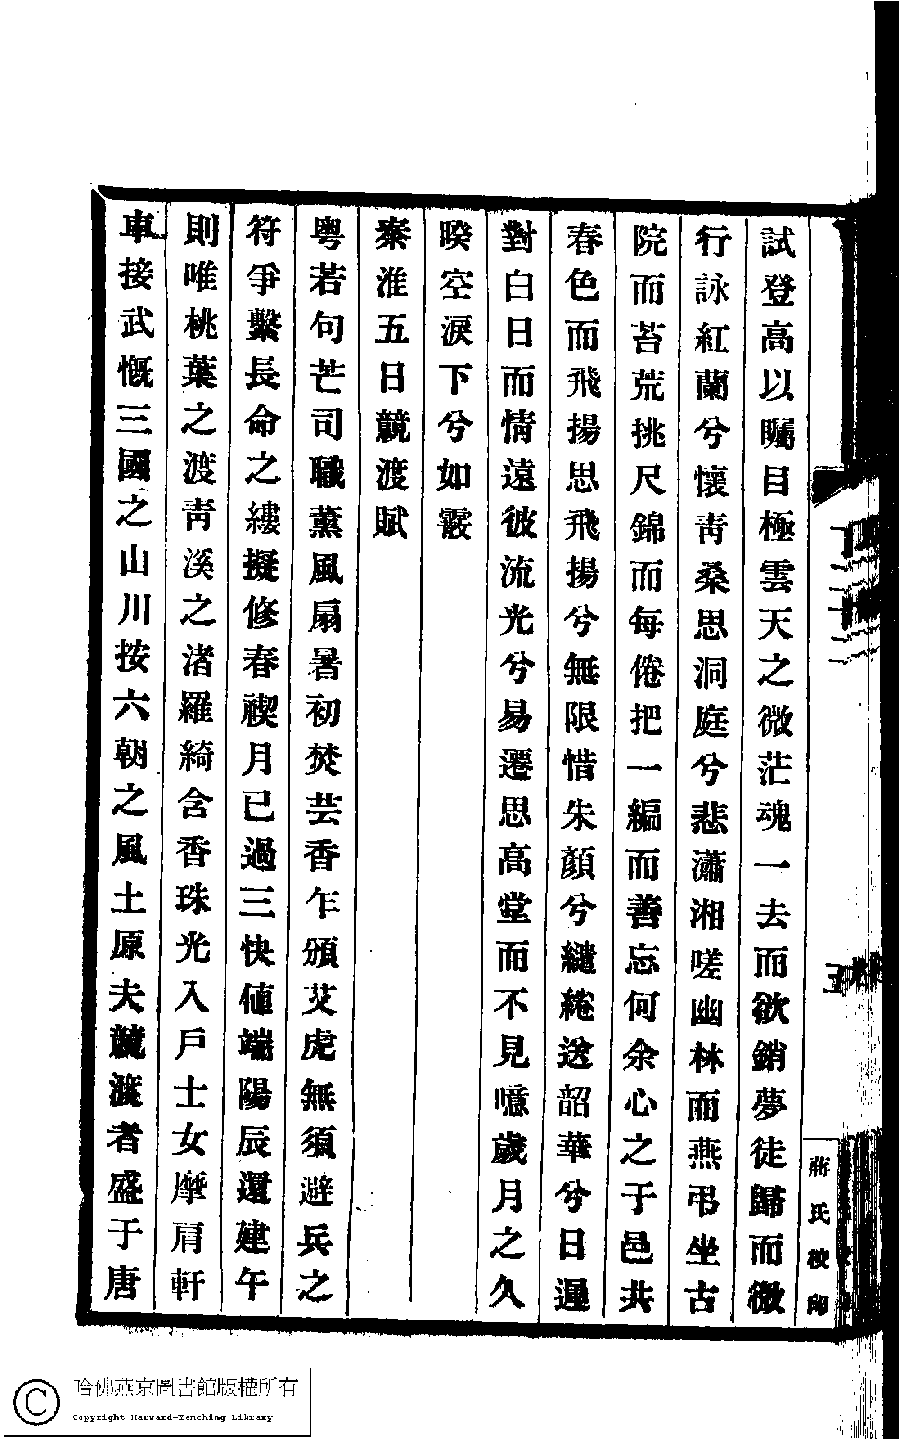 試登高以矚目極雲天之微茫魂一去而欲銷夢徒歸而微
行詠紅蘭兮懷靑桑思洞庭兮悲瀟湘嗟幽林而燕弔坐古
院而苔荒挑尺錦而每倦把一編而善忘何余心之于邑共
春色而飛揚思飛揚兮無限惜朱顏兮繾綣送韶華兮日遲
對白日而情遠彼流光兮易遷思高堂而不見噫歲月之久
暌空淚下兮如霰
秦淮五日競渡賦
粵若句芒司職薰風扇暑初焚芸香乍頒艾虎無須避兵之
符爭繫長命之縷擬修春禊月已過三快値端陽辰還建午
則唯桃葉之渡靑溪之渚羅綺含香珠光入戶士女摩肩軒
車接武慨三國之山川按六朝之風土原夫競渡者盛于唐
蔣氏校印
哈佛燕京圖書館版權所有
Copyright Harvard-Yenching Library